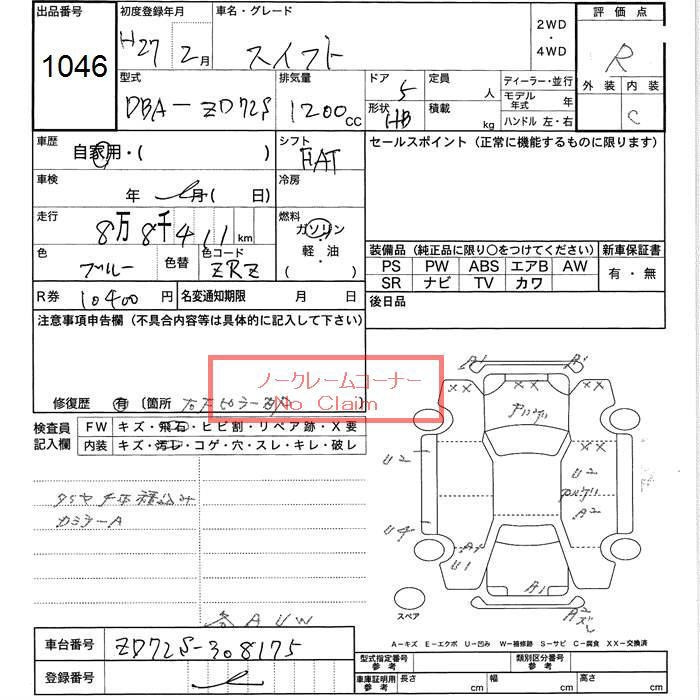 出品番号
1046
初度登録年月
H27年 2月
車名・グレード
スイフト
2WD
・
4WD
評価点
R
外装 内装
C
型式
DBA-ZD72S
排気量
1200cc
ドア
5
形状
HB
定員
人
積載
kg
ディーラー・並行
モデル年式 年
ハンドル 左・右
車歴
自家用・( )
シフト
FAT
セールスポイント（正常に機能するものに限ります）
車検
年 月( 日)
冷房
走行
8万8千411km
燃料
ガソリン
・
軽・油
( )
色
ブルー
色替
色コード
ZRZ
装備品（純正品に限り○をつけてください）
新車保証書
PS PW ABS エアB AW
SR ナビ TV カワ
有・無
R券
10400円
名変通知期限 月 日
後日品
注意事項申告欄（不具合内容等は具体的に記入して下さい）
ノークレームコーナー
No Claim
修復歴 有 〔箇所 〕
検査員記入欄
FW キズ・飛石・ヒビ割・リペア跡・X要
内装 キズ・汚レ・コゲ・穴・スレ・キレ・破レ
タイヤ
カミラーA
各AUW
A1
XX XX
XX
U2
U2
A2
U4
U1
A1
A2
スペア
A-キズ E-エクボ U-凹み W-補修跡 S-サビ C-腐食 XX-交換済
車台番号
ZD72S-308175
登録番号
型式指定番号 参考
類別区分番号 参考
車庫証明用 参考
長さ cm
幅 cm
高さ cm